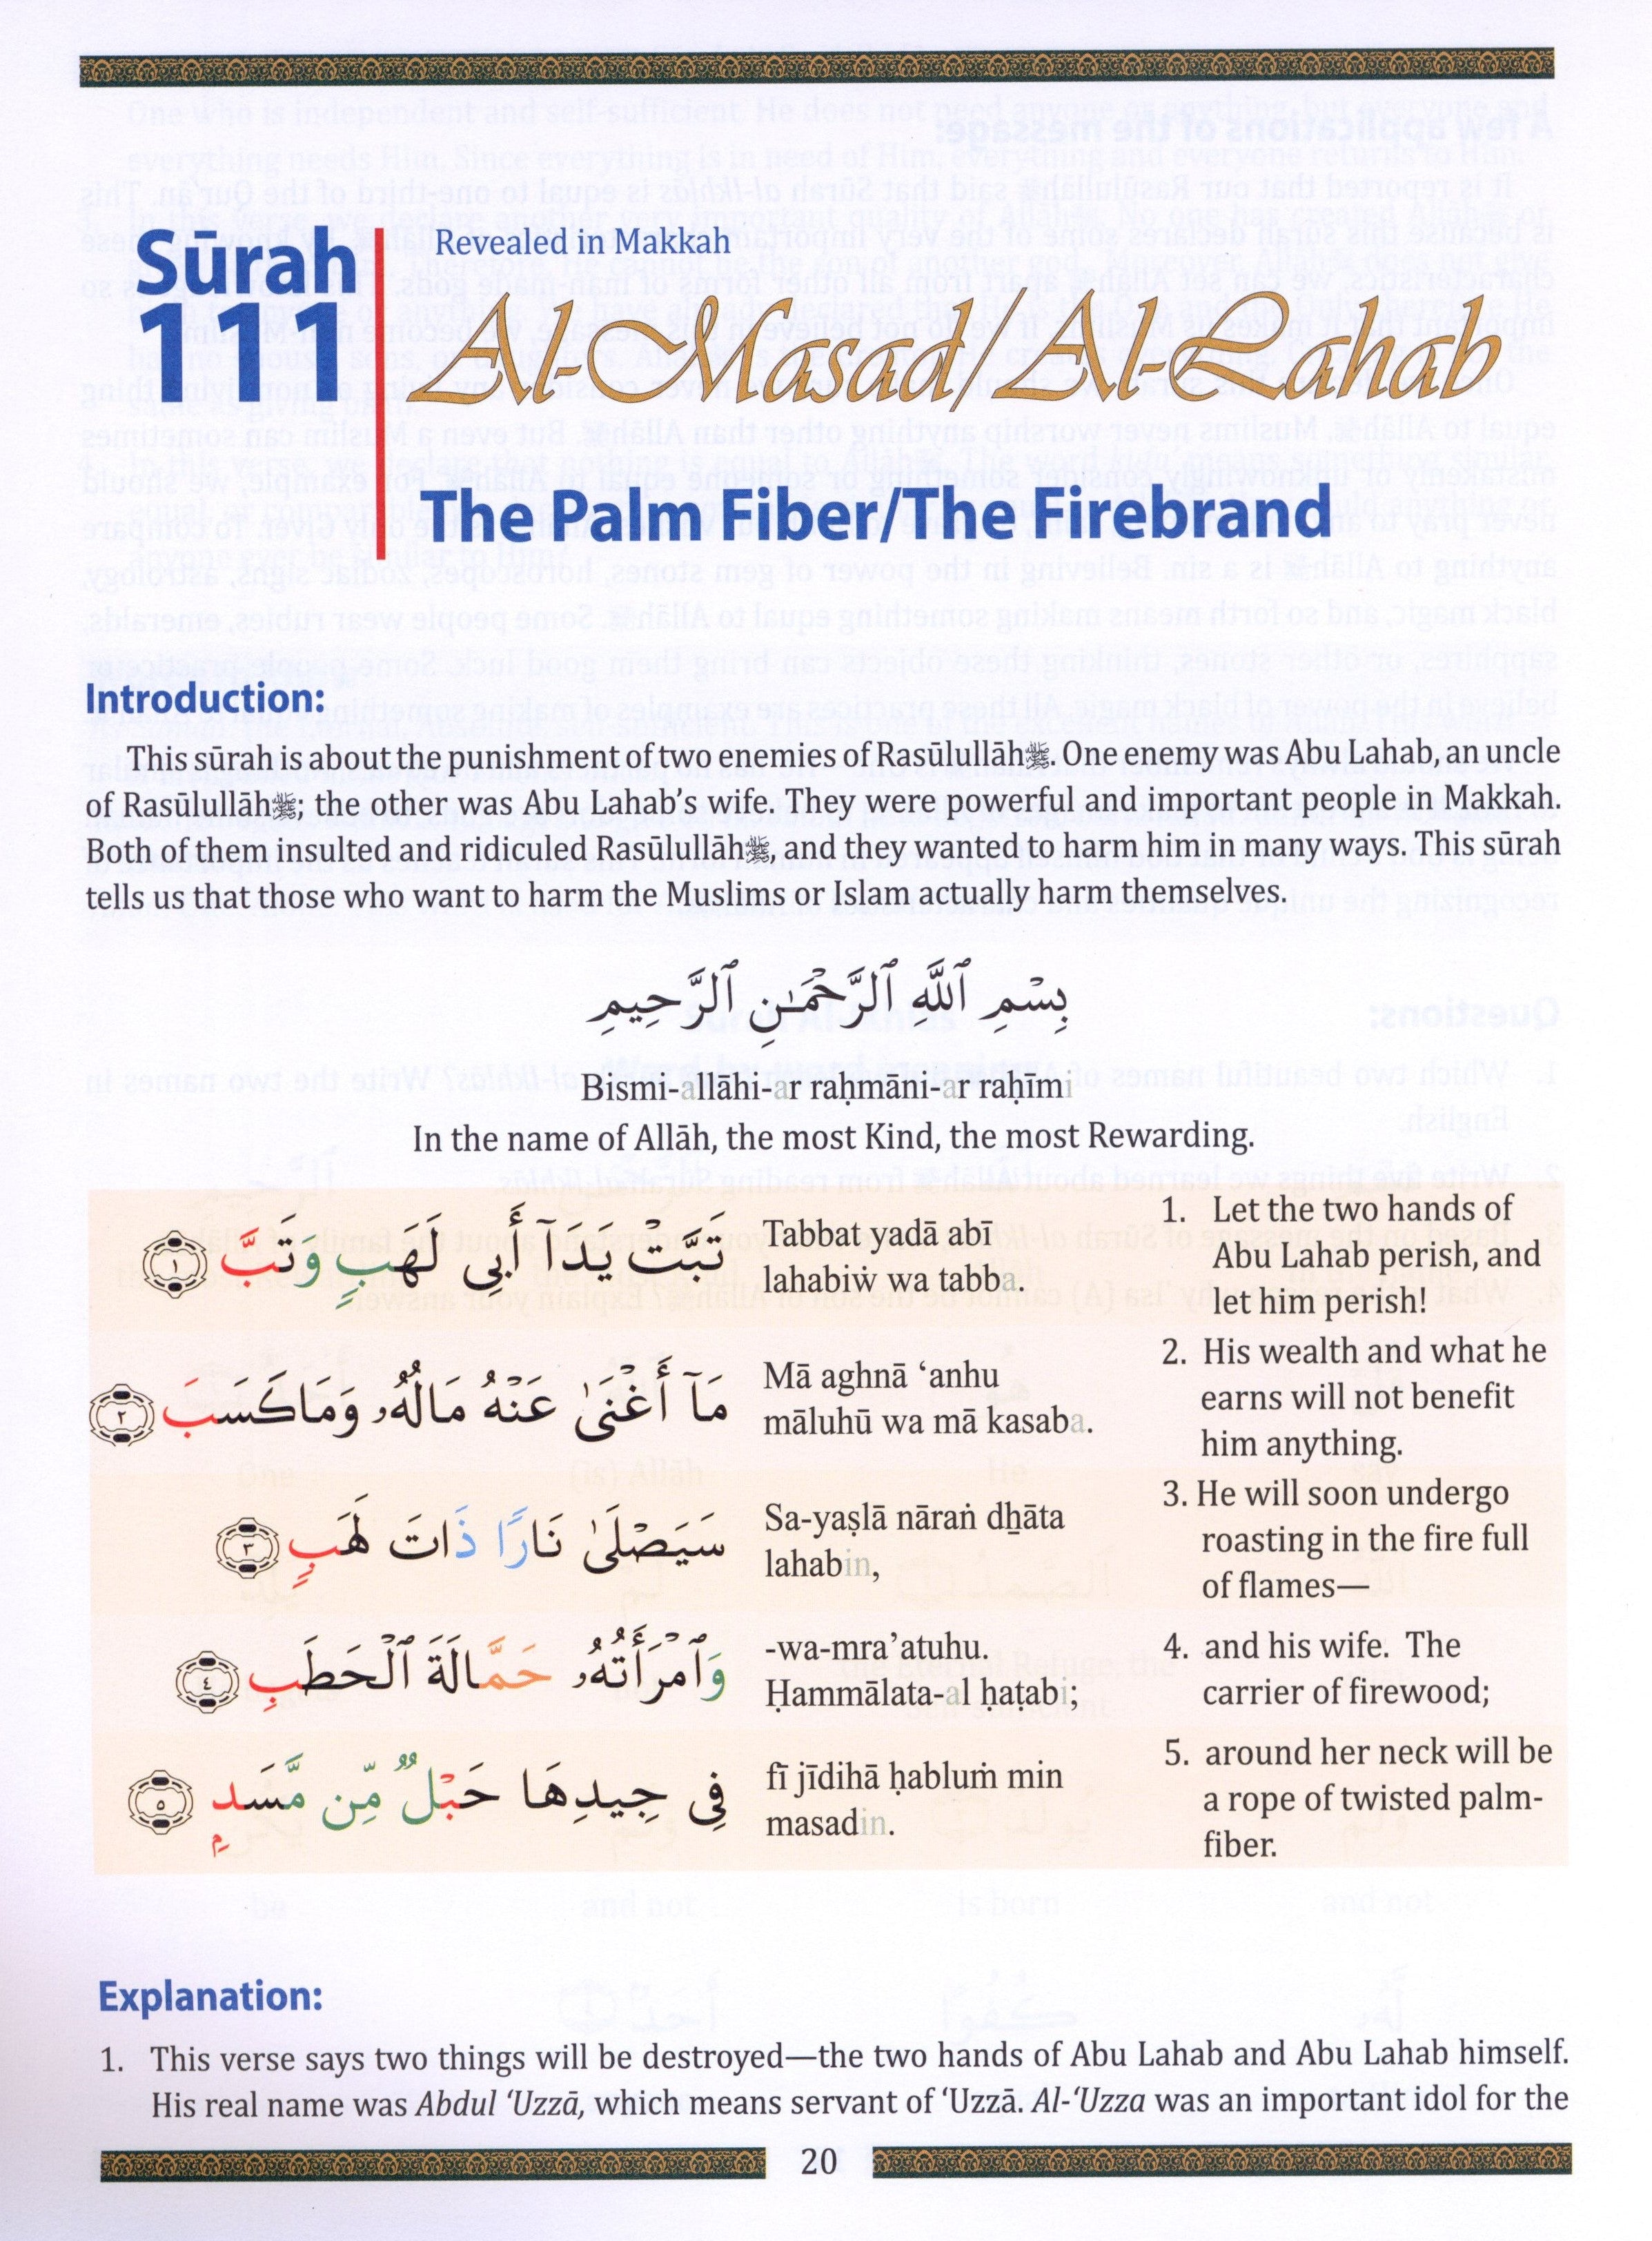 Sūrah
111
Revealed in Makkah
Al-Masad/Al-Lahab
The Palm Fiber/The Firebrand
Introduction:
This sūrah is about the punishment of two enemies of Rasūlullāhﷺ. One enemy was Abu Lahab, an uncle
of Rasūlullāhﷺ; the other was Abu Lahab’s wife. They were powerful and important people in Makkah.
Both of them insulted and ridiculed Rasūlullāhﷺ, and they wanted to harm him in many ways. This sūrah
tells us that those who want to harm the Muslims or Islam actually harm themselves.
بِسْمِ ٱللَّهِ ٱلرَّحْمَـٰنِ ٱلرَّحِيمِ
Bismi-allāhi-ar raḥmāni-ar raḥīmi
In the name of Allāh, the most Kind, the most Rewarding.
تَبَّتْ يَدَآ أَبِى لَهَبٍ وَتَبَّ ١
Tabbat yadā abī
lahabiẇ wa tabba.
1. Let the two hands of
Abu Lahab perish, and
let him perish!
مَآ أَغْنَىٰ عَنْهُ مَالُهُۥ وَمَا كَسَبَ ٢
Mā aghnā ‘anhu
māluhū wa mā kasaba.
2. His wealth and what he
earns will not benefit
him anything.
سَيَصْلَىٰ نَارًا ذَاتَ لَهَبٍ ٣
Sa-yaṣlā nāraṅ dẖāta
lahabin,
3. He will soon undergo
roasting in the fire full
of flames—
وَٱمْرَأَتُهُۥ حَمَّالَةَ ٱلْحَطَبِ ٤
-wa-mra’atuhu.
Ḥammālata-al ḥaṭabi;
4. and his wife. The
carrier of firewood;
فِى جِيدِهَا حَبْلٌ مِّن مَّسَدٍۭ ٥
fī jīdihā ḥabluṁ min
masadin.
5. around her neck will be
a rope of twisted palm-
fiber.
Explanation:
1. This verse says two things will be destroyed—the two hands of Abu Lahab and Abu Lahab himself.
His real name was Abdul ‘Uzzā, which means servant of ‘Uzzā. Al-‘Uzza was an important idol for the
20